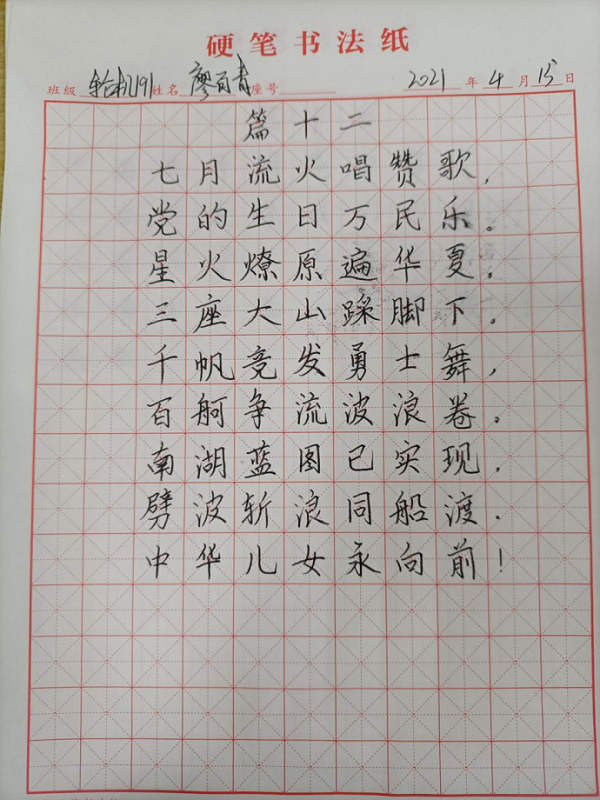 硬笔书法纸
班级 轮机191 姓名 廖百青 座号 2021年4月15日
篇十二
七月流火唱赞歌,
党的生日万民乐。
星火燎原遍华夏,
三座大山踩脚下。
千帆竞发勇士舞,
百舸争流波浪卷。
南湖蓝图已实现,
劈波斩浪同船渡.
中华儿女永向前!